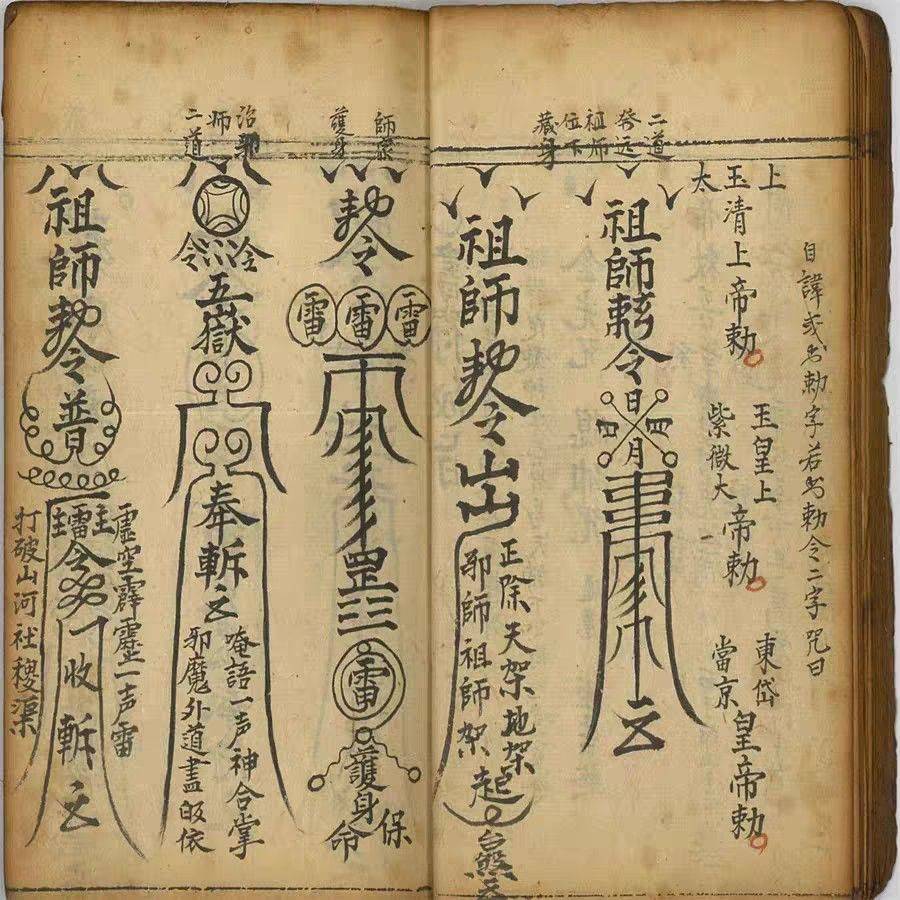 自諱或出勅字若出勅令二字咒曰
上玉太
清上帝勅
玉皇上
紫微大
帝勅
東岱
當京
皇帝勅
二道
發远
祖师
位下
藏身
祖師勅令日月
祖師勅令山
正除天架地架
邪師祖師架
起
師
護身
勅令
雷雷雷
雨
罡
雷
護身
保命
治邪
师
二道
五嶽
奉斬
唵語一声神合掌
邪魔外道盡皈依
祖師勅令普
虛空霹靂一声雷
打破山河社稷渠
收斬